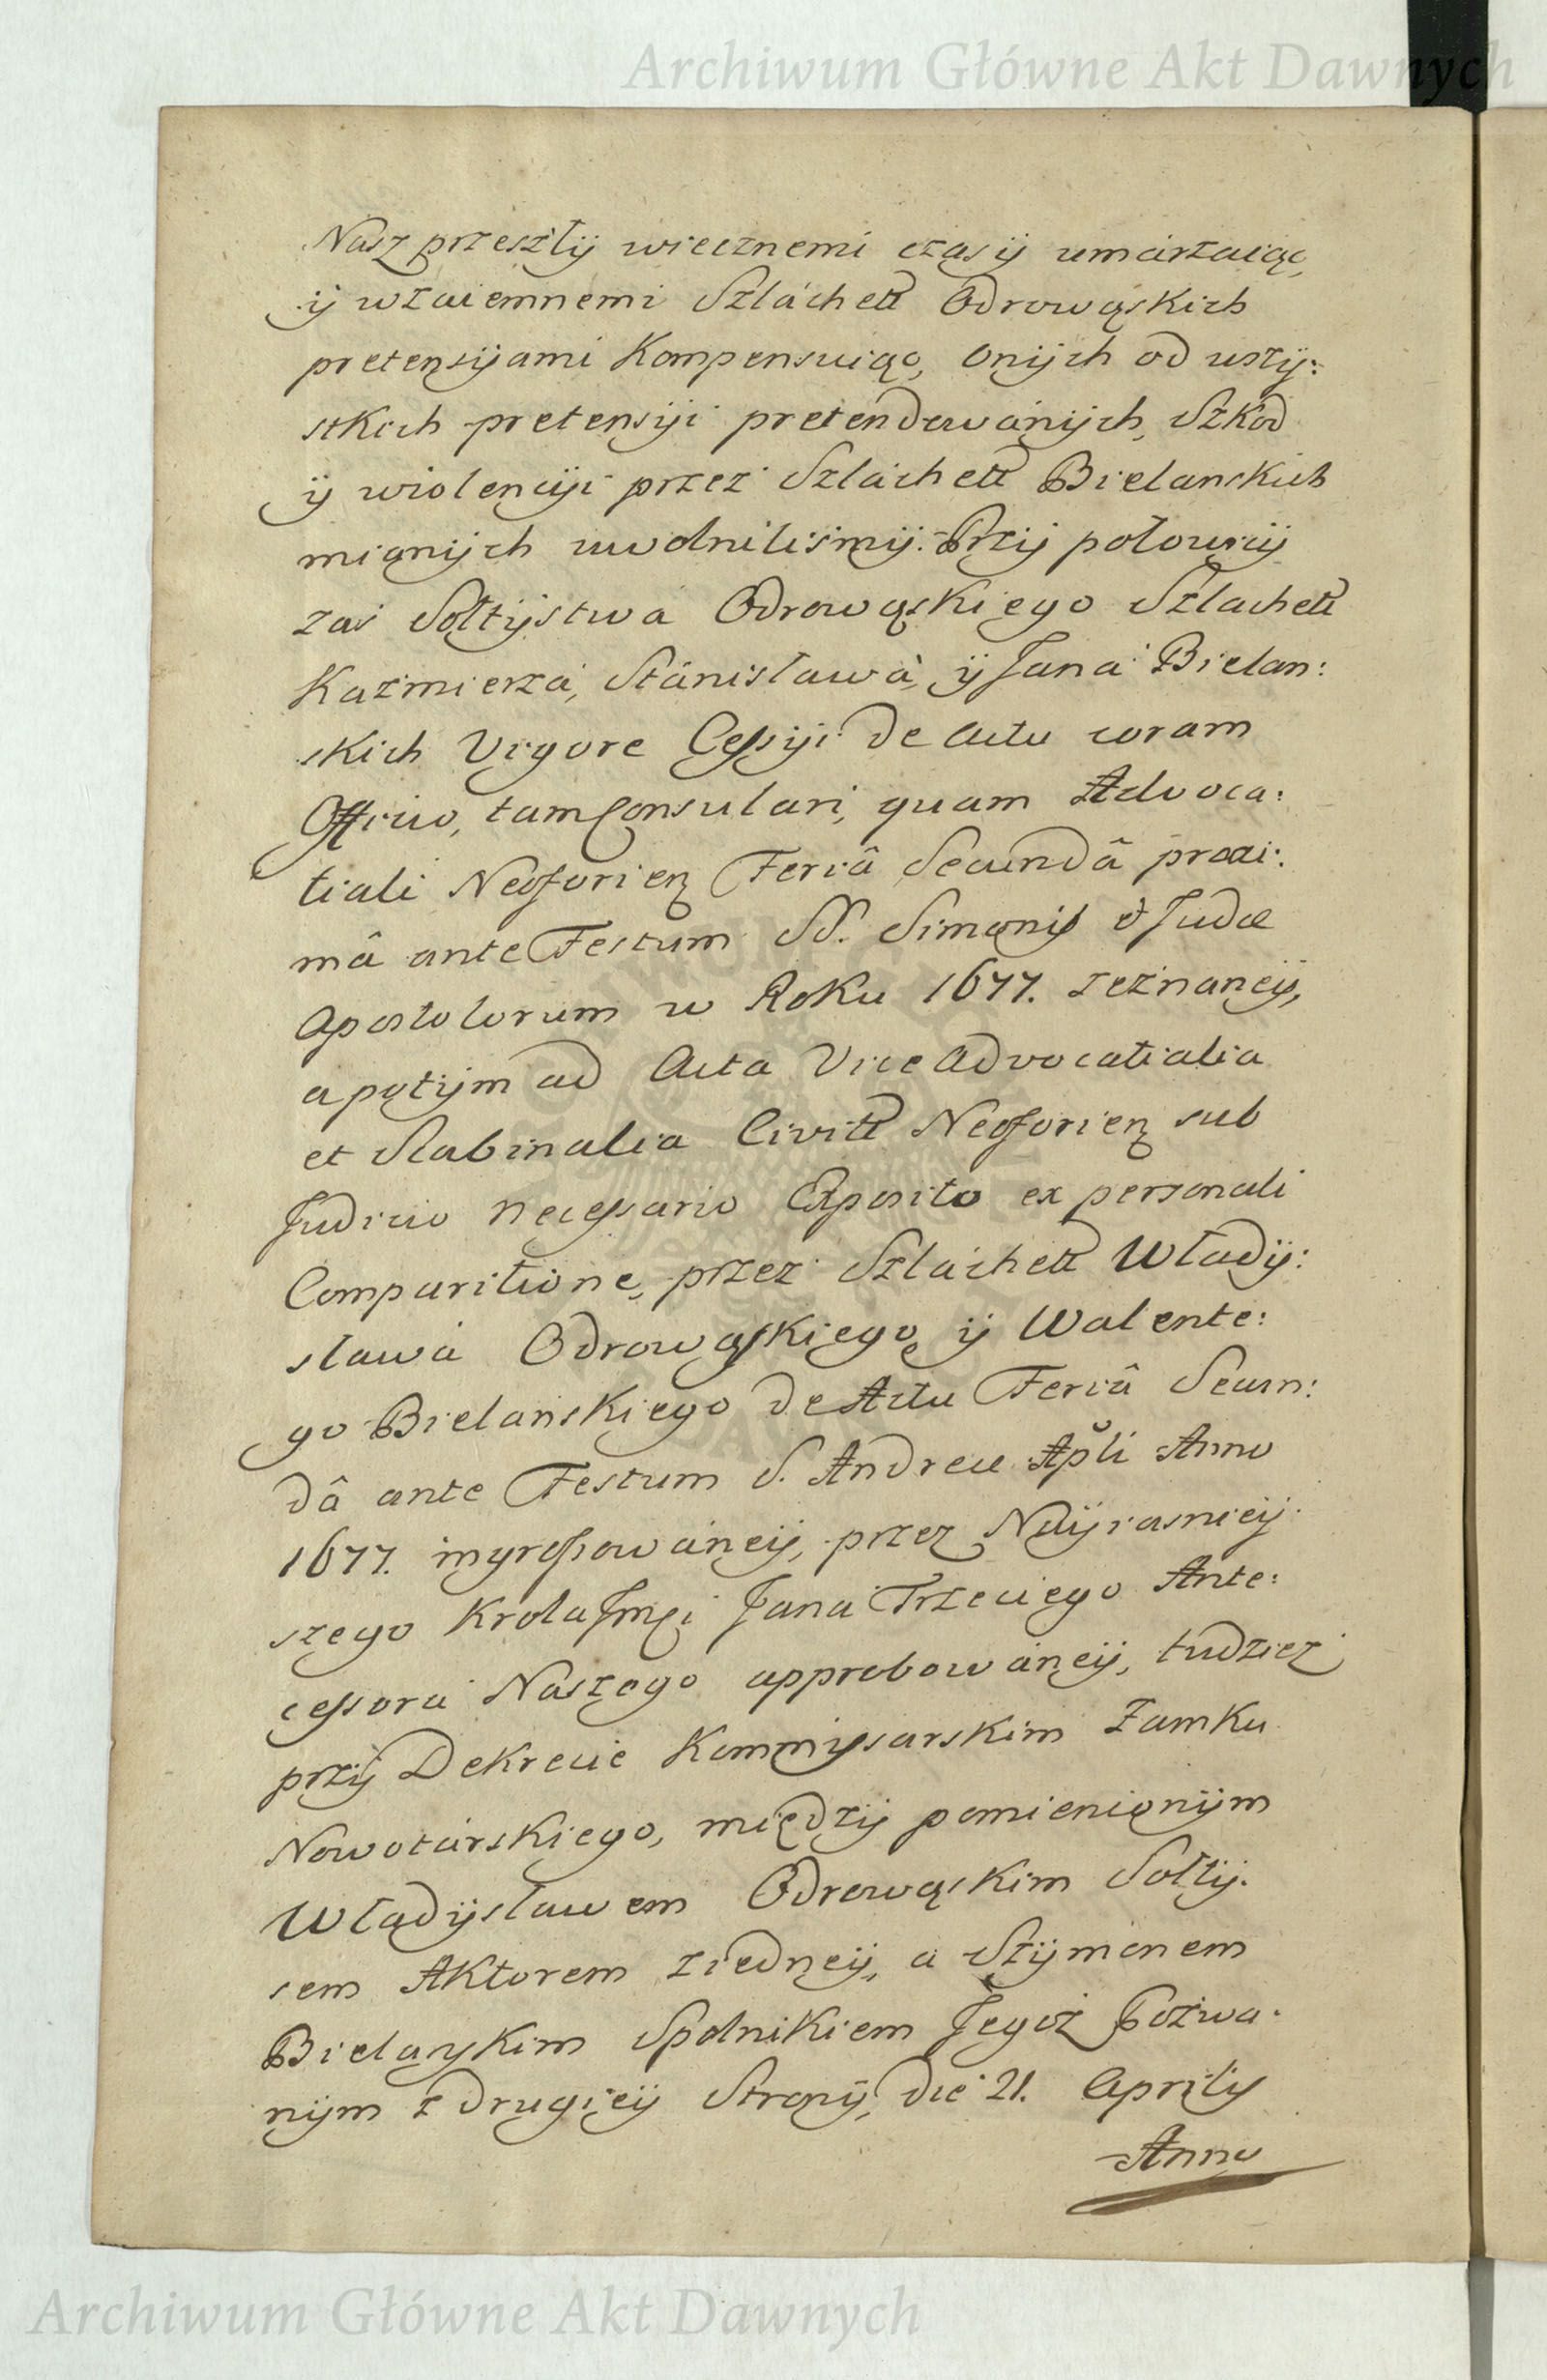 Archiwum Główne Akt Dawnych
Nasz przeszłÿ wiecznemi czasÿ umárzaiąc,
ÿ wzaiemnemi Szláchett Odrowąskich
pretensÿami Kompensuiąc, onÿch od wszÿ:
stkich pretensÿi pretendowánÿch, Szkod
ÿ wiolencÿi przez Szláchett Bielanskich
mianÿch uwolnilismÿ. Przÿ połowicÿ
zaś Sołtÿstwá Odrowąskiego Szlachett
Kazimierzá, Stánisławá, ÿ Janá Bielan:
skich Vigore Cessÿi de Actu coram
Officio, tam Consulari, quam Advoca:
tiali Neoforien Feriâ Secundâ proxi:
mâ ante Festum SS. Simonis et Judæ
Apostolorum w Roku 1677. zeznaneÿ,
a potÿm ad Acta Vice Advocatialia
et Scabinalia Civitt Neoforien sub
Judicio necessario Exposito ex personali
Comparitione, przez Szláchett Władÿ:
sławá Odrowąskiego ÿ Walente:
go Bielanskiego de Actu Feriâ Secun:
dâ ante Festum S. Andreæ Apli Anno
1677. ingrossowáneÿ, przez Naÿiasnieÿ
szego Krola Jmci Jana Trzeciego Ante:
cessora Naszego approbowáneÿ, tudziesz
przÿ Dekrecie Kommissarskim Zamku
Nowotárskiego, międzÿ pomienionÿm
Władÿsławem Odrowąskim Sołtÿ:
sem Aktorem z iedneÿ, a Szÿmonem
Bielanskim Spolnikiem Jegoż Pozwa:
nÿm z drugieÿ Stronÿ, die 21. Aprilis
Anno
Archiwum Główne Akt Dawnych